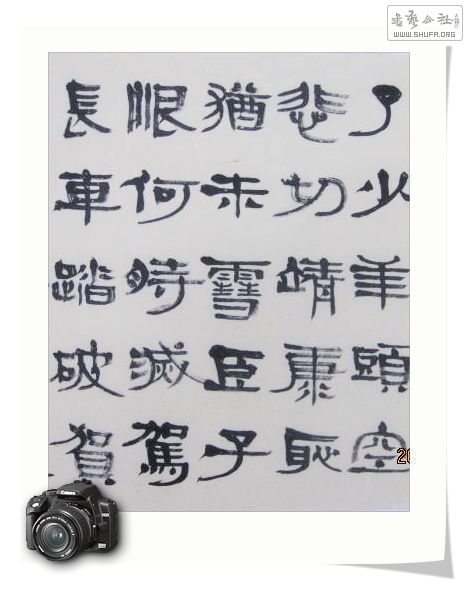 了少年頭空
悲切靖康恥
猶未雪臣子
恨何時滅駕
長車踏破賀
20
書藝公社
WWW.SHUFA.ORG
Canon
EOS